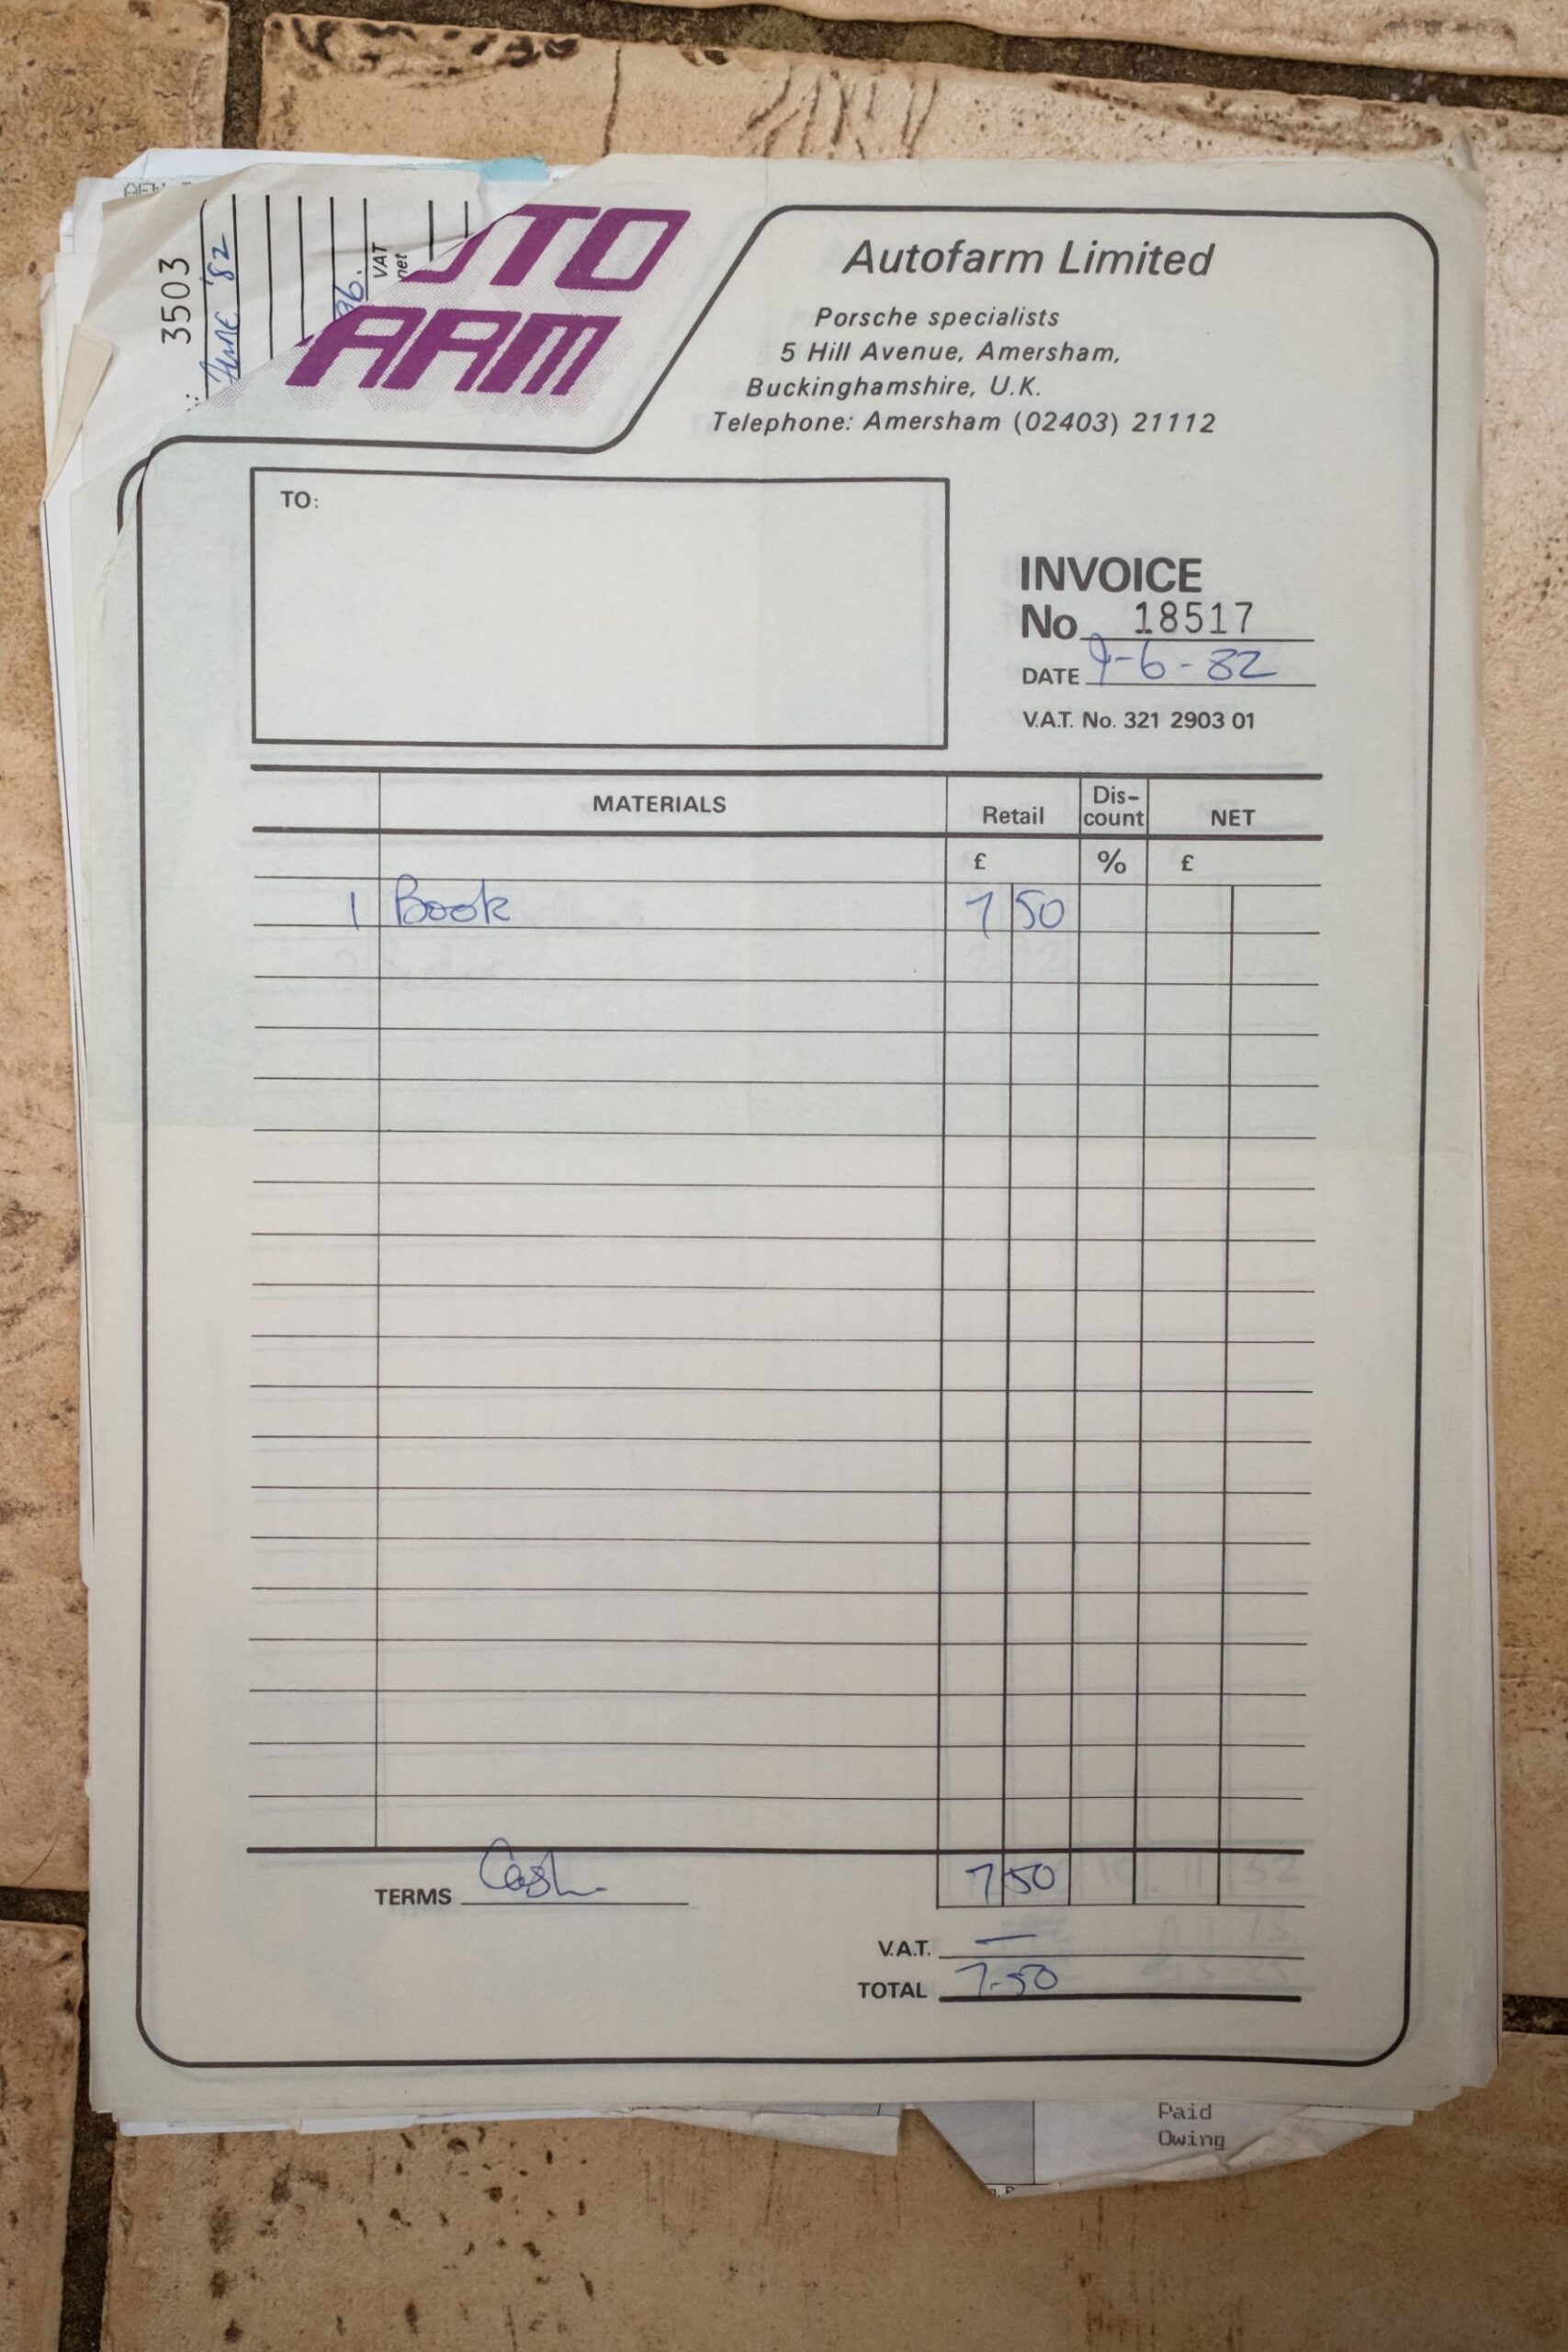 3503
JUNE '82
96.
VAT
net
UTO
ARM
Autofarm Limited
Porsche specialists
5 Hill Avenue, Amersham,
Buckinghamshire, U.K.
Telephone: Amersham (02403) 21112
TO:
INVOICE
No 18517
DATE 9-6-82
V.A.T. No. 321 2903 01
MATERIALS Retail Dis-count NET
£ % £
1 Book 7 50
TERMS Cash 7 50
V.A.T. —
TOTAL 7-50
Paid
Owing